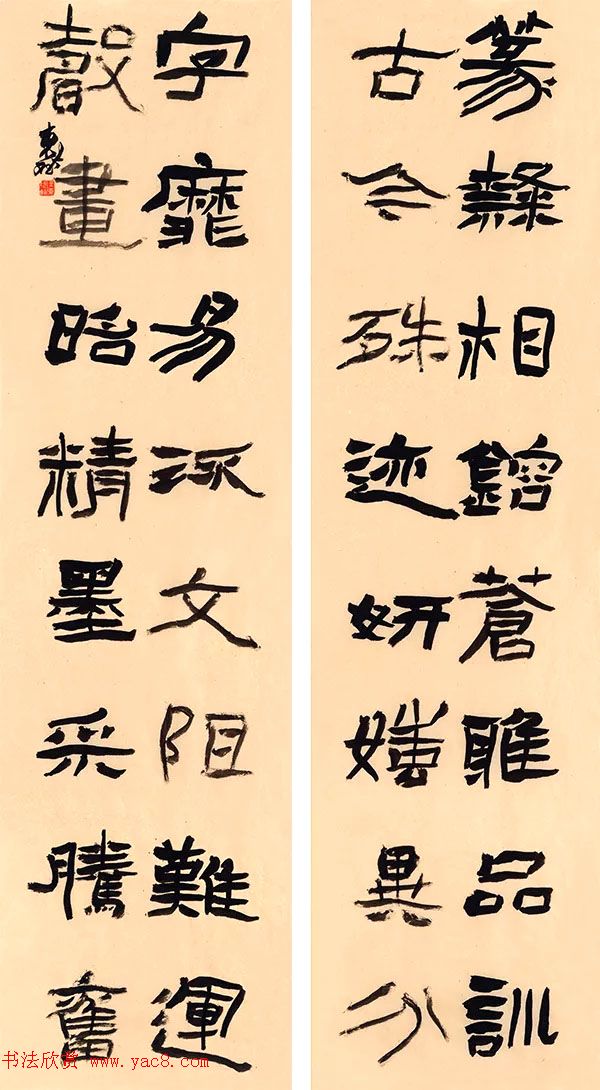 篆隸相鎔蒼雅品訓
古今殊迹妍媸異分
字靡易流文阻難運
聲畫昭精墨采騰奮
书法欣赏 www.yac8.com